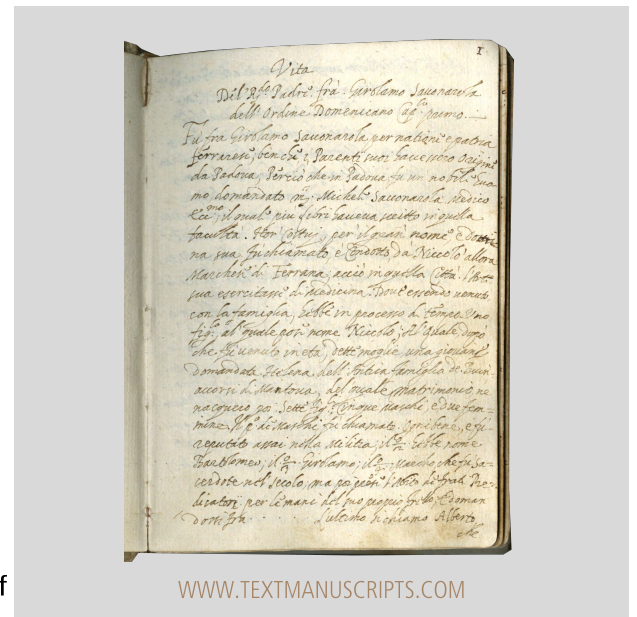 1
Vita
Del R.do Padre fra Girolamo Savonarola
dell'Ordine Domenicano Cap.lo primo
Fu fra Girolamo Savonarola per natione e patria
ferrarese, ben che i Parenti suoi havessero origine
da Padova, Perciò che in Padova fu un nobil huo
mo domandato Michel Savonarola medico
Ecc.mo il qual più libri haveva scritto in quella
facultà. Hor costui per il gran nome e dottri
na sua fu chiamato e condotto da Niccolò allora
Marchese di Ferrara, acciò in quella Città l'Arte
sua esercitasse di medicina. Dove essendo venuto
con la famiglia, hebbe in processo di tempo uno
fig.lo al quale pose nome Niccolo; Al quale dopo
che fu venuto in età, dette moglie una giovane
domandata Helena dell'Antica famiglia de Buon
accorsi di Mantova, del quale matrimonio ne
nacquero poi sette fig.li cinque maschi, e due fem
mine. Il p.o de Maschi fu chiamato e fu
reputato assai nella Militia; il 2.o hebbe nome
Bartolomeo; il Girolamo; il Marcho che fu sa
cerdote nel secolo, ma poi prese l'Abito de frati Pre
dicatori per le mani del suo proprio f.llo, e doman
dossi fra L'ultimo si chiamò Alberto
che
f
WWW.TEXTMANUSCRIPTS.COM